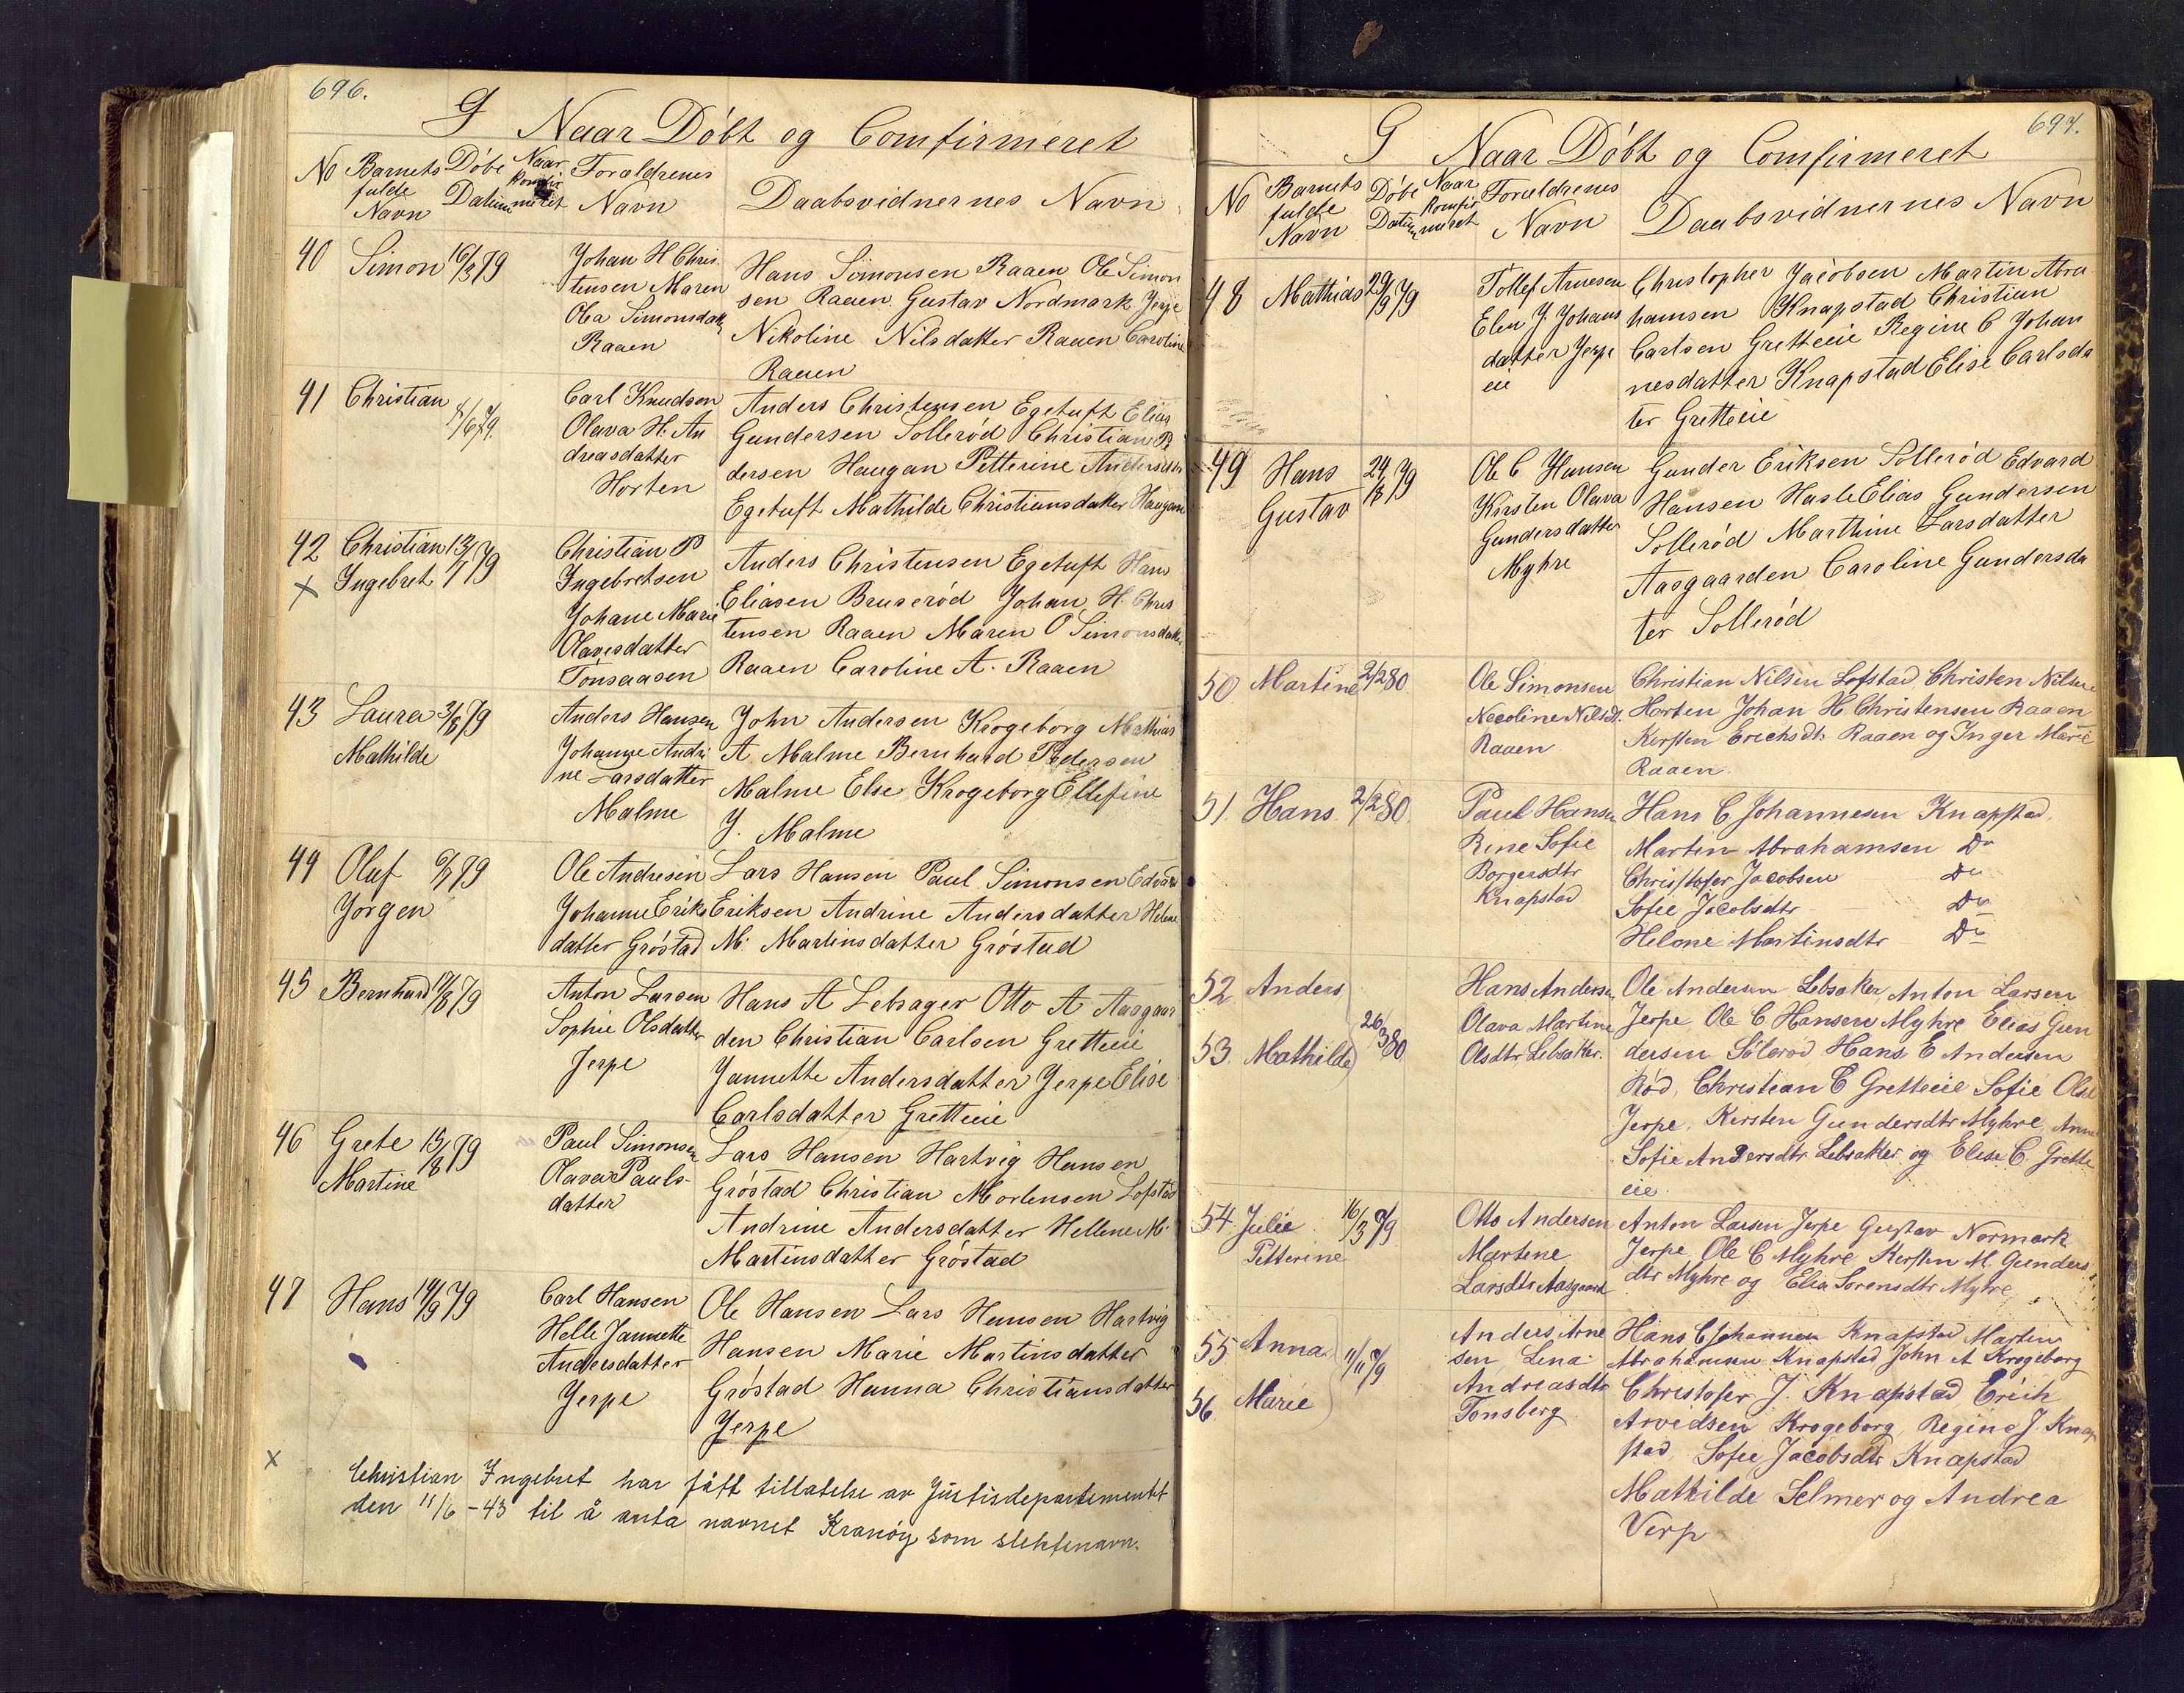 696.
G Naar Döbt og Comfirmeret
No Barnets fulde Navn Döbe Datum Naar Komfirmeret Forældrenes Navn Daabsvidnernes Navn
40 Simon 16/3 79
Johan H Chris
tensen Maren
Olea Simonsdatt
Raaen
Hans Simonsen Raaen Ole Simon
sen Raaen Gustav Nordmark Jerpe
Nikoline Nilsdatter Raaen Caroline
Raaen
41 Christian /6 79.
Carl Knudsen
Olava H. An
dreasdatter
Horten
Anders Christensen Egetuft Elias
Gundersen Sollerød Christian P
dersen Haugan Petterine Andersdatter
Egetuft Mathilde Christiansdatter Haugan
42 Christian 13/7 79
x Ingebret
Christian P
Ingebretsen
Johane Marie
Olavesdatter
Tønsaasen
Anders Christensen Egetuft Hans
Eliasen Bruserød Johan H. Chris
tensen Raaen Maren O Simonsdatter
Raaen Caroline A. Raaen
43 Laura 3/8 79
Mathilde
Anders Hansen
Johanne Andri
ne Larsdatter
Malme
John Andersen Krogeborg Mathias
A Malme Bernhard Pedersen
Malme Else Krogeborg Ellefine
J. Malme
44 Oluf 79
Jørgen
Ole Andresen
Johanne Eriks
datter Gröstad
Lars Hansen Paul Simonsen Edvard
Eriksen Andrine Andersdatter Helene
M. Martinsdatter Gröstad
45 Bernhard 17/8 79
Anton Larsen
Sophie Olsdatter
Jerpe
Hans A Lebsager Otto A Aasgaar
den Christian Carlsen Gretteeie
Jannette Andersdatter Jerpe Elise
Carlsdatter Gretteeie
46 Grete 15/8 79
Martine
Paul Simonsen
Olava Pauls-
datter
Lars Hansen Hartvig Hansen
Gröstad Christian Mortensen Lofstad
Andrine Andersdatter Hellene M.
Martinsdatter Gröstad
47 Hans 14/9 79
Carl Hansen
Helle Jannette
Andersdatter
Jerpe
Ole Hansen Lars Hansen Hartvig
Hansen Marie Martinsdatter
Gröstad Hanna Christiansdatter
Jerpe
x Christian Ingebret har fått tillatelse av Justisdepartementet
den 18/6 -43 til å anta navnet Kranöy som slektsnavn.
697.
G Naar Döbt og Comfirmeret
No Barnets fulde Navn Döbe Datum Naar Komfirmeret Forældrenes Navn Daabsvidnernes Navn
48 Mathias 29/9 79
Tollef Arnesen
Elen J. Johans
datter Jerpe
eie
Christopher Jacobsen Martin Abra
hamsen Knapstad Christian
Carlsen Gretteeie Regine C Johan
nesdatter Knapstad Elise Carlsda
ter Gretteeie
49 Hans 24/8 79
Gustav
Ole C Hansen
Kirsten Olava
Gundersdatter
Myhre
Gunder Eriksen Sollerød Edvard
Hansen Hasle Elias Gundersen
Sollerød Marthine Larsdatter
Aasgaarden Caroline Gundersda
ter Sollerød
50. Martine 2/2 80
Ole Simonsen
Necoline Nilsdt.
Raaen
Christian Nilsen Lofstad Christen Nilsen
Horten Johan H Christensen Raaen
Kersten Erichsdtr Raaen og Inger Marie
Raaen.
51. Hans 2/2 80.
Paul Hansen
Rine Sofie
Borgersdtr
Knapstad
Hans C Johannesen Knapstad.
Martin Abrahamsen Do
Christofer Jacobsen Do
Sofie Jacobsdtr Do
Helene Martinsdtr Do
52 Anders
53. Mathilde 26/3 80
Hans Andersen
Olava Martine
Olsdtr Lebsaker.
Ole Andersen Lebsaker, Anton Larsen
Jerpe, Ole C Hansen Myhre Elias Gun
dersen Sölerød Hans E Andersen
Rød, Christian C Gretteeie Sofie Olsd
Jerpe. Kersten Gundersdtr Myhre, Anne
Sofie Andersdtr Lebsaker og Elise C. Grette
eie.
54. Julie 16/3 79
Petterine
Otto Andersen
Martene
Larsdtr Aasgaard
Anton Larsen Jerpe Gustav Normark
Jerpe, Ole C Myhre Kersten M. Gunders
dtr Myhre og Elia Sorensdtr Myhre
55. Anna
56. Marie 11/11 79
Anders Arne
sen Lena
Andreasdtr
Tonsberg
Hans C Johannen Knapstad Martin
Abrahamsen Knapstad John A Krogeborg
Christofer J. Knapstad Erich
Arvedsen Krogeborg, Regine J. Knap
stad, Sofie Jacobsdtr Knapstad
Mathilde Selmer og Andrea
Verp